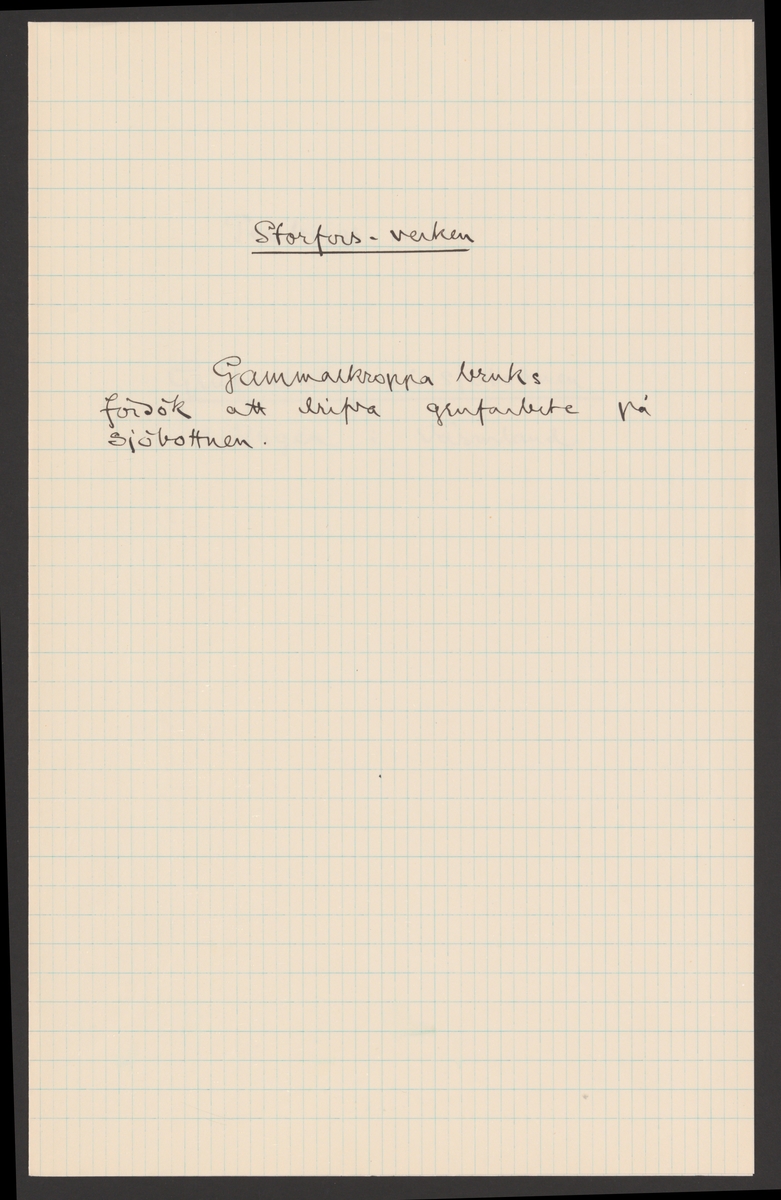 Storfors-verken
Gammalkroppa bruks
försök att drifva grufarbete på
sjöbottnen.